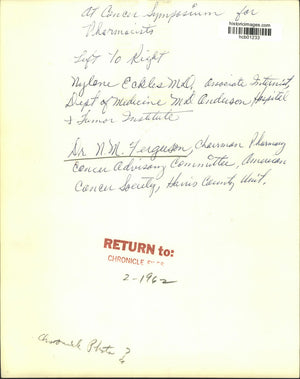 At Cancer Symposium for
Pharmacists
historicimages.com
hcb01233
Left To Right
Nylene Eckles M.D., Associate Internist,
Dept of Medicine M.D. Anderson Hospital
& Tumor Institute
Dr N.M. Ferguson, Chairman Pharmacy
Cancer Advisory Committee, American
Cancer Society, Harris County Unit.
RETURN to:
CHRONICLE
2-1962
Chronicle Photo ?